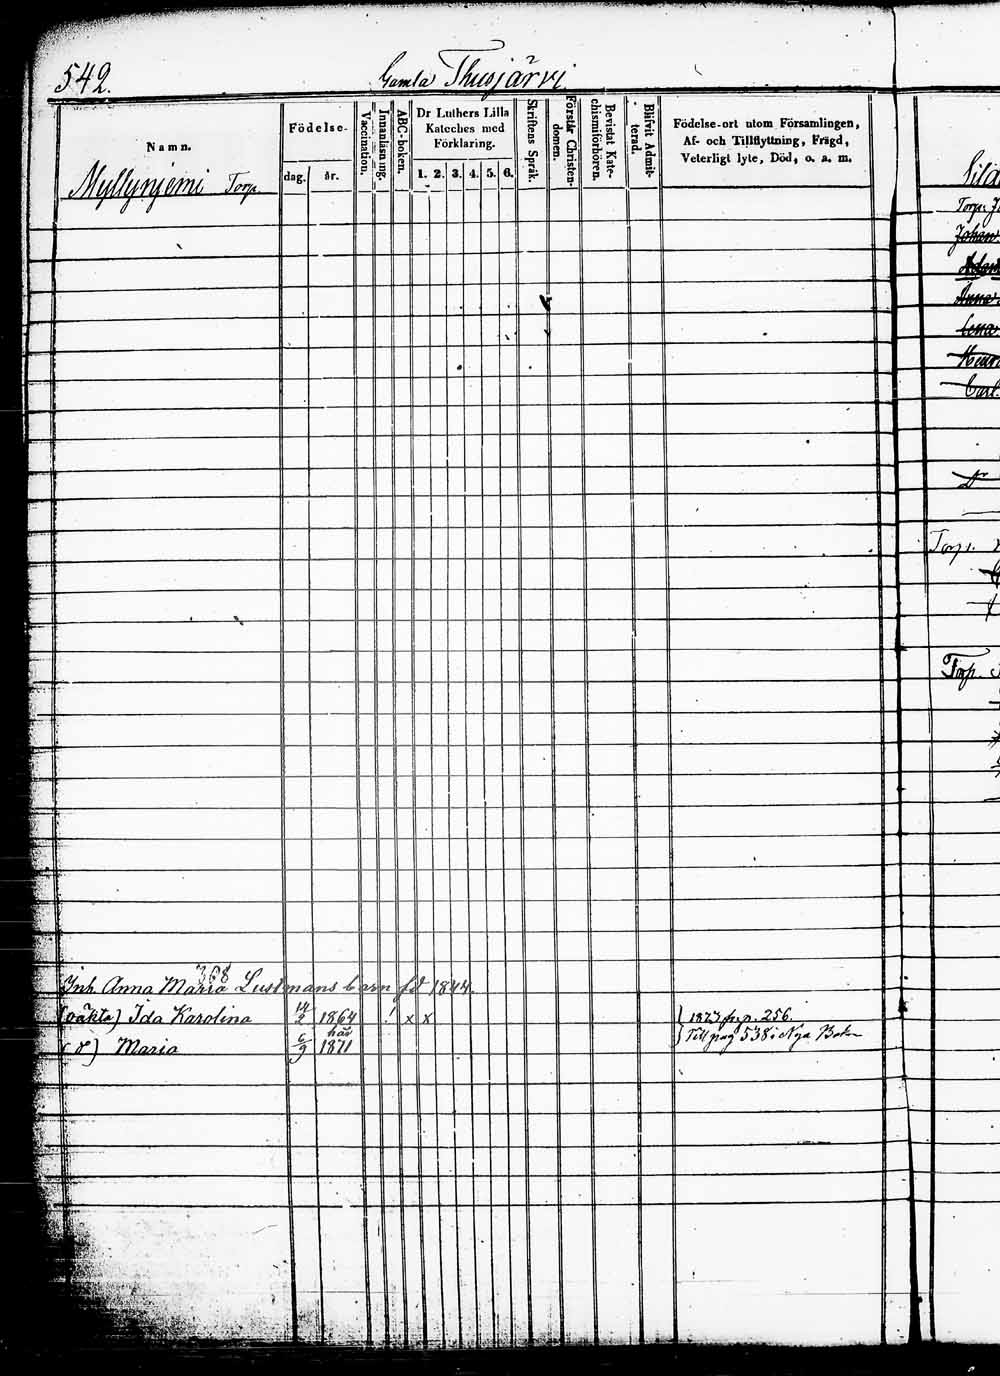 542.
Gamla Thusjärvi
Namn.
Födelse-
dag. år.
Vaccination.
Innanläsning.
ABC-boken.
Dr Luthers Lilla
Kateches med
Förklaring.
1. 2. 3. 4. 5. 6.
Skriftens Språk.
Förstår Christen-
domen.
Bevistat Kate-
chismiförhören.
Blifvit Admit-
terad.
Födelse-ort utom Församlingen,
Af- och Tillflyttning, Frägd,
Veterligt lyte, Död, o. a. m.
Myllynjemi Torp
368
Inh. Anna Maria Lustmans barn fd 1844.
(oäkta) Ida Karolina 14/2 1864 ! x x } 1873 fr. p. 256.
här
(d°) Maria 6/9 1871 } Till pag 538 i Nya Boken
Torp. J
Johan
Adam
Anna
Lena
Henr
Carl
Torp.
Torp.